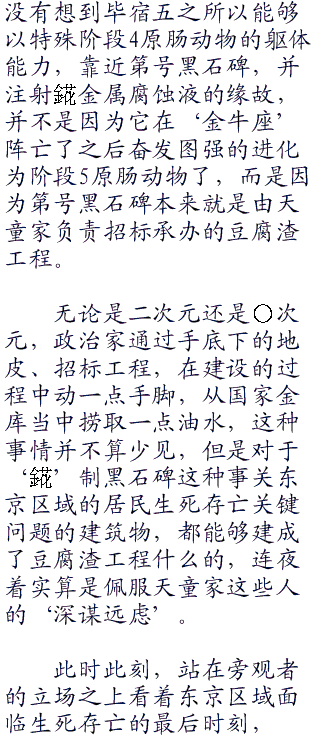 没有想到毕宿五之所以能够
以特殊阶段4原肠动物的躯体
能力，靠近第号黑石碑，并
注射錵金属腐蚀液的缘故，
并不是因为它在‘金牛座’
阵亡了之后奋发图强的进化
为阶段5原肠动物了，而是因
为第号黑石碑本来就是由天
童家负责招标承办的豆腐渣
工程。
无论是二次元还是〇次
元，政治家通过手底下的地
皮、招标工程，在建设的过
程中动一点手脚，从国家金
库当中捞取一点油水，这种
事情并不算少见，但是对于
‘錵’制黑石碑这种事关东
京区域的居民生死存亡关键
问题的建筑物，都能够建成
了豆腐渣工程什么的，连夜
着实算是佩服天童家这些人
的‘深谋远虑’。
此时此刻，站在旁观者
的立场之上看着东京区域面
临生死存亡的最后时刻，